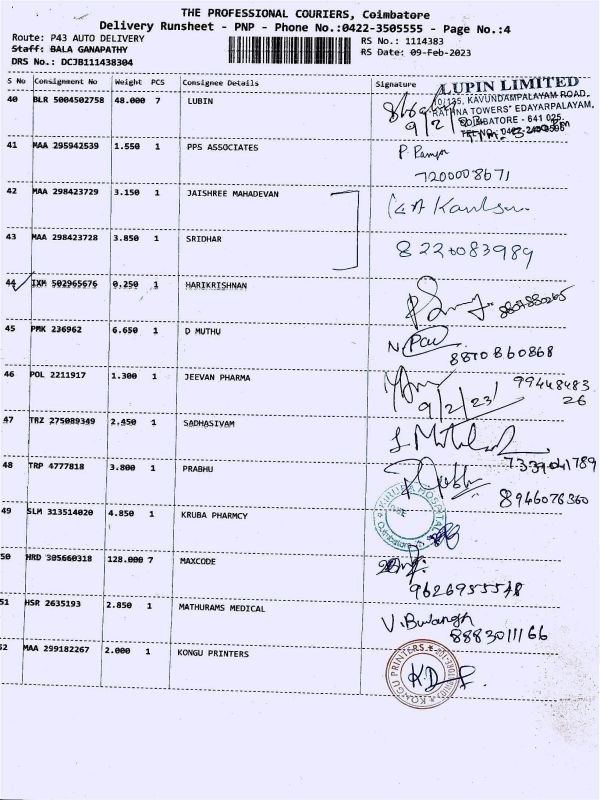 THE PROFESSIONAL COURIERS, Coimbatore
Delivery Runsheet - PNP - Phone No.:0422-3505555 - Page No.:4
Route: P43 AUTO DELIVERY
RS No.: 1114383
Staff: BALA GANAPATHY
RS Date: 09-Feb-2023
DRS No.: DCJB111438304
S No Consignment No Weight PCS Consignee Details Signature
LUPIN LIMITED
KAVUNDAMPALAYAM ROAD,
TOWERS" EDAYARPALAYAM,
COIMBATORE - 641 025.
40 BLR 5004502758 48.000 7 LUBIN
9/2/23
41 MAA 295942539 1.550 1 PPS ASSOCIATES
7200008671
42 MAA 298423729 3.150 1 JAISHREE MAHADEVAN
43 MAA 298423728 3.850 1 SRIDHAR 8220083989
44 IXM 502965676 0.250 1 HARIKRISHNAN
45 PMK 236962 6.650 1 D MUTHU
8870860868
46 POL 2211917 1.300 1 JEEVAN PHARMA 99448483
9/2/23/ 26
47 TRZ 275089349 2.450 1 SADHASIVAM
7339041789
48 TRP 4777818 3.800 1 PRABHU
8946076360
49 SLM 313514020 4.850 1 KRUBA PHARMCY
50 HRD 305660318 128.000 7 MAXCODE
51 HSR 2635193 2.850 1 MATHURAMS MEDICAL
8883011166
52 MAA 299182267 2.000 1 KONGU PRINTERS
KONGU PRINTERS